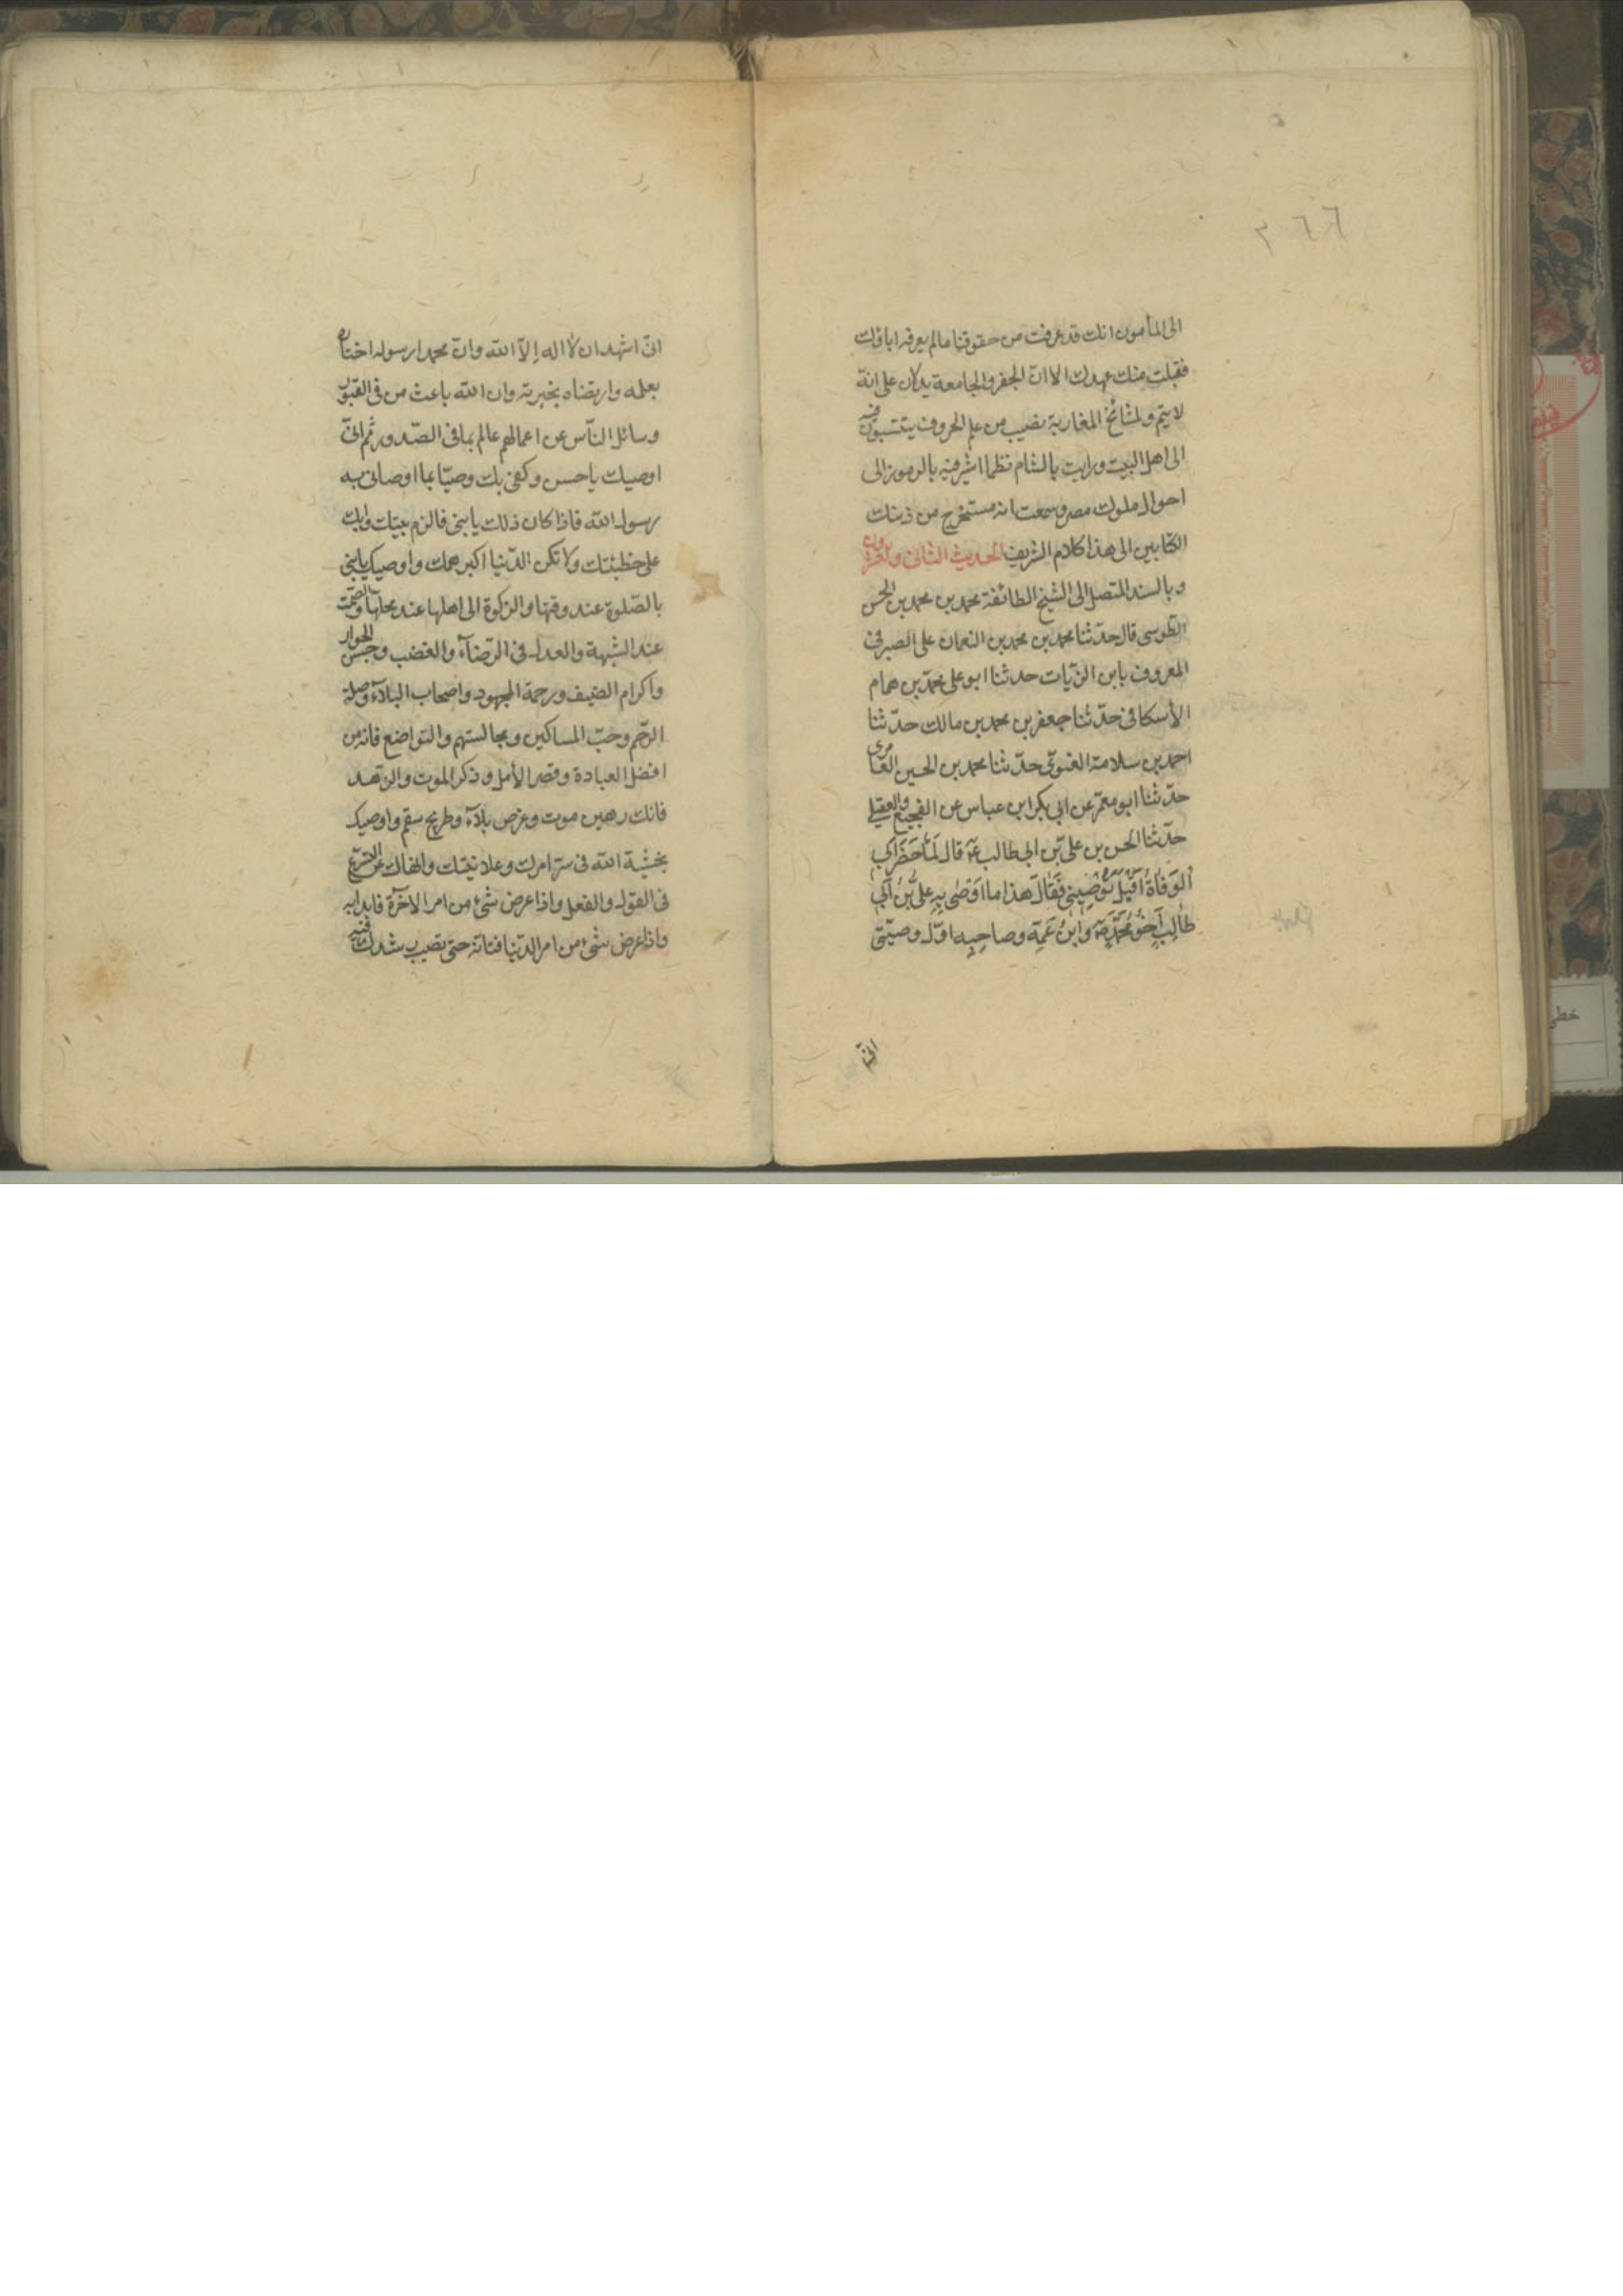 ٢٦٦
الى المأمون انك قد عرفت من حقوقنا ما لم يعرفه اباؤك
فقبلت منك عهدك الا ان الجفر والجامعة يدلان على انه
لا يتم ولمشائخ المغاربة نصيب من علم الحروف ينتسبون فيه
الى اهل البيت ورايت بالشام نظما اشير فيه بالرموز الى
احوال ملوك مصر وسمعت انه مستخرج من ذينك
الكتابين الى هذا كلام الشريف الحديث الثانى والعشرون
وبالسند المتصل الى الشيخ الطائفة محمد بن محمد بن الحسن
الطوسى قال حدّثنا محمد بن محمد بن النعمان على الصيرفى
المعروف بابن الزّيات حدثنا ابو على محمّد بن همام
الأسكافى حدّثنا جعفر بن محمد بن مالك حدّثنا
احمد بن سلامة الغنوىّ حدّثنا محمد بن الحسين العامرى
حدّثنا ابو معمر عن ابي بكر ابن عباس عن الفجيع العقيلى
حدّثنا الحسن بن علىّ بن ابى طالب ع قال لَمّا حَضَرَ اَبى
اَلوَفاةُ اَقبَلَ يُوصِينى فَقالَ هذا ما اَوصى بِهِ علىُّ بْنُ اَبى
طالِبٍ اَخُو مُحَمَّدٍ ص وَابْنُ عَمِّه وصاحِبِه اوّل وصيّتى
انى
انّى اشهد ان لا اله إلاّ الله وانّ محمدا رسوله اختاره
بعلمه وارتضاه بخيرته وان الله باعث من فى القبور
وسائل النّاس عن اعمالهم عالم بما فى الصّدور ثم انّى
اوصيك يا حسن وكفى بك وصيّا بما اوصانى به
رسول الله فاذا كان ذلك يا بنى فالزم بيتك وابك
على خطيئتك ولا تكن الدّنيا اكبر همك واوصيك يا بنى
بالصّلوة عند وقتها والزكوة الى اهلها عند محلّها والصّمت
عند الشّبهة والعدل فى الرّضآء والغضب وحسن الجوار
واكرام الضيف ورحمة المجهود واصحاب البلآء وصلة
الرّحم وحبّ المساكين ومجالستهم والتواضع فانه من
افضل العبادة وقصر الأمل وذكر الموت والزهد
فانك رهين موت وغرض بلآء وطريح سقم واوصيك
بخشية الله فى سرّ امرك وعلانيتك وانهاك عن التسرّع
فى القول والفعل واذا عرض شىء من امر الآخرة فابدا به
واذا عرض شىء من امر الدّنيا فتانّه حتى تصيب رشدك فيه
خطى